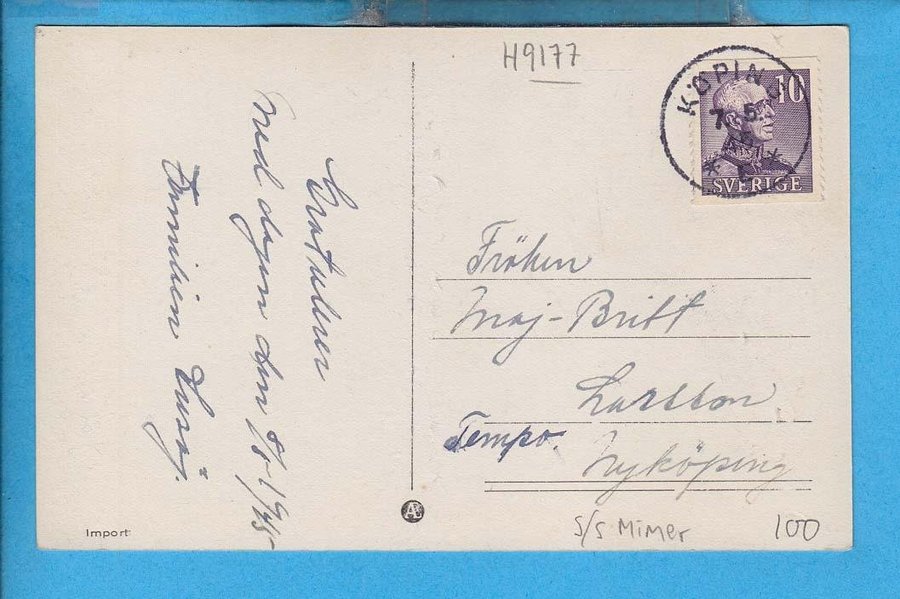 H9177
KÖPING
7.5.
45
10
SVERIGE
Gratulerer
med dagen den
Familien
Fröken
Maj-Britt
Larsson
Tempo.
Nyköping
Import
A
S/S Mimer
100